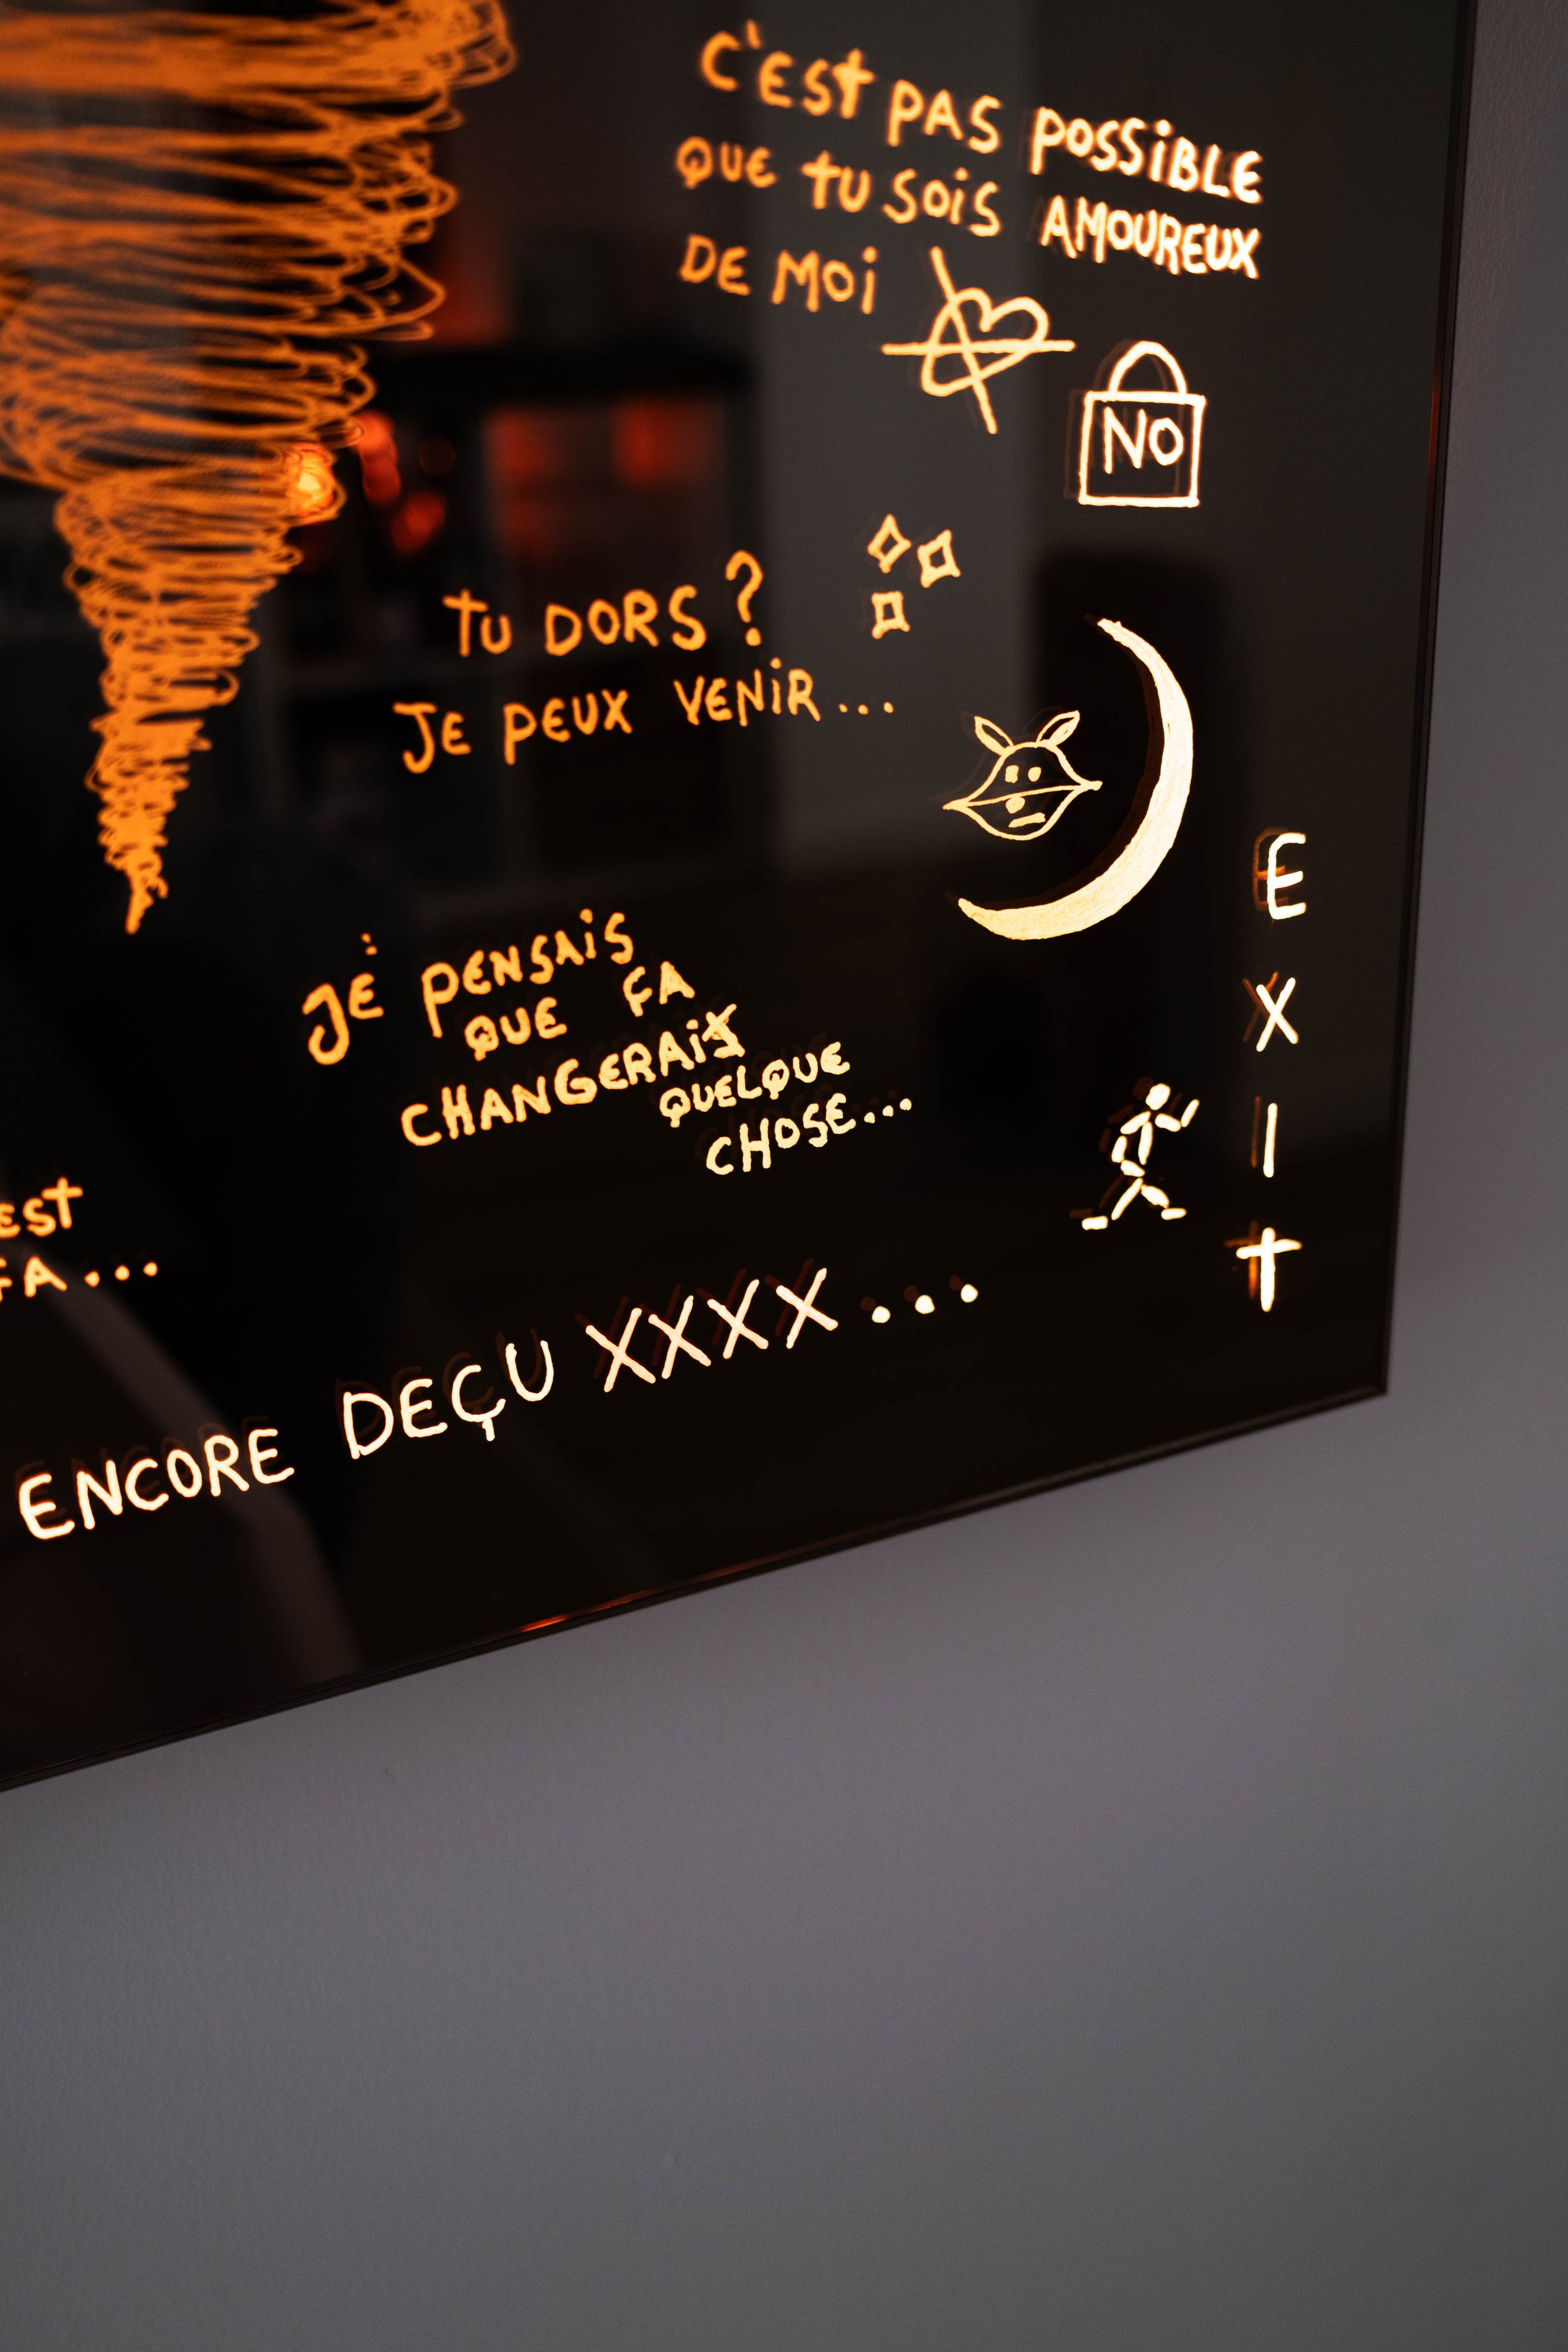 C'EST PAS POSSIBLE
QUE TU SOIS AMOUREUX
DE MOI
NO
TU DORS ?
JE PEUX VENIR...
JE PENSAIS
QUE ÇA
CHANGERAIS
QUELQUE
CHOSE...
EXIT
EST
ÇA...
ENCORE DEÇU XXXX...